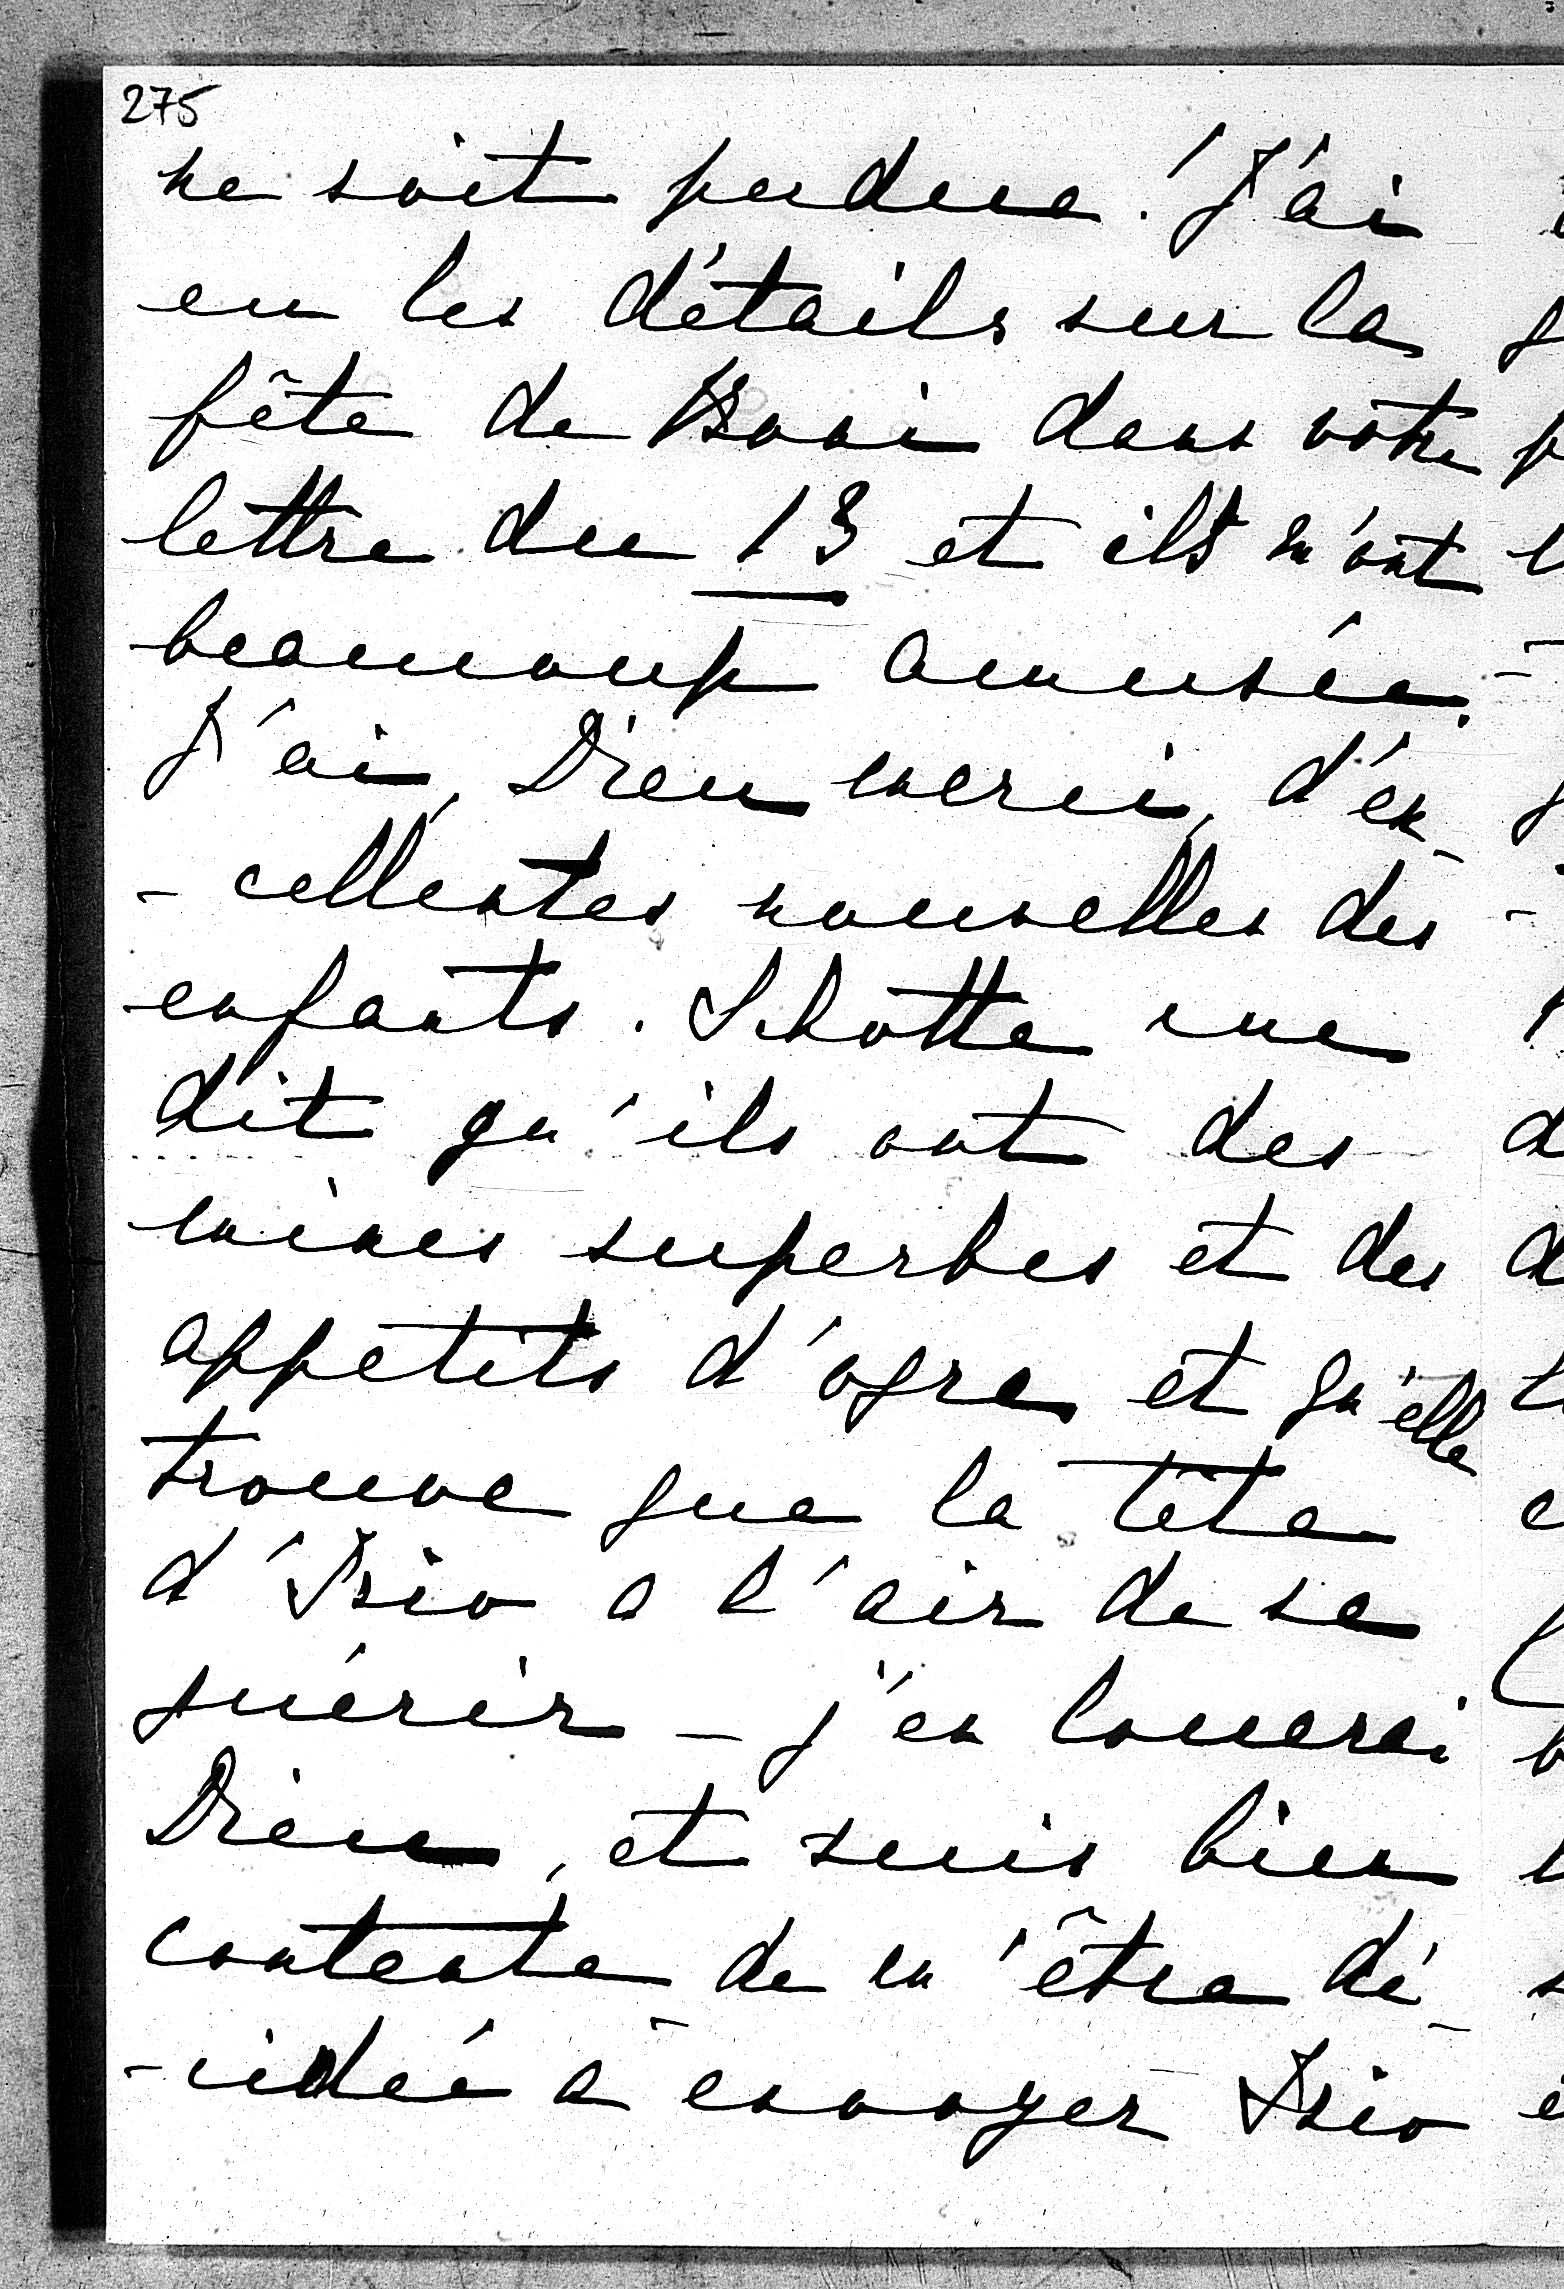 275
ne soit perdue. J'ai
eu les détails sur la
fête de Boni dans votre
lettre du 13 et ils m'ont
beaucoup amusée.
J'ai, Dieu merci, d'ex-
-cellentes nouvelles des
enfants. Schotte me
dit qu'ils ont des
mines superbes et des
appetits d'ogre et qu'elle
trouve que la tête
d'Isio a l'air de se
guérir – j'en louerai
Dieu, et suis bien
contente de m'être dé-
-cidée à envoyer Isio